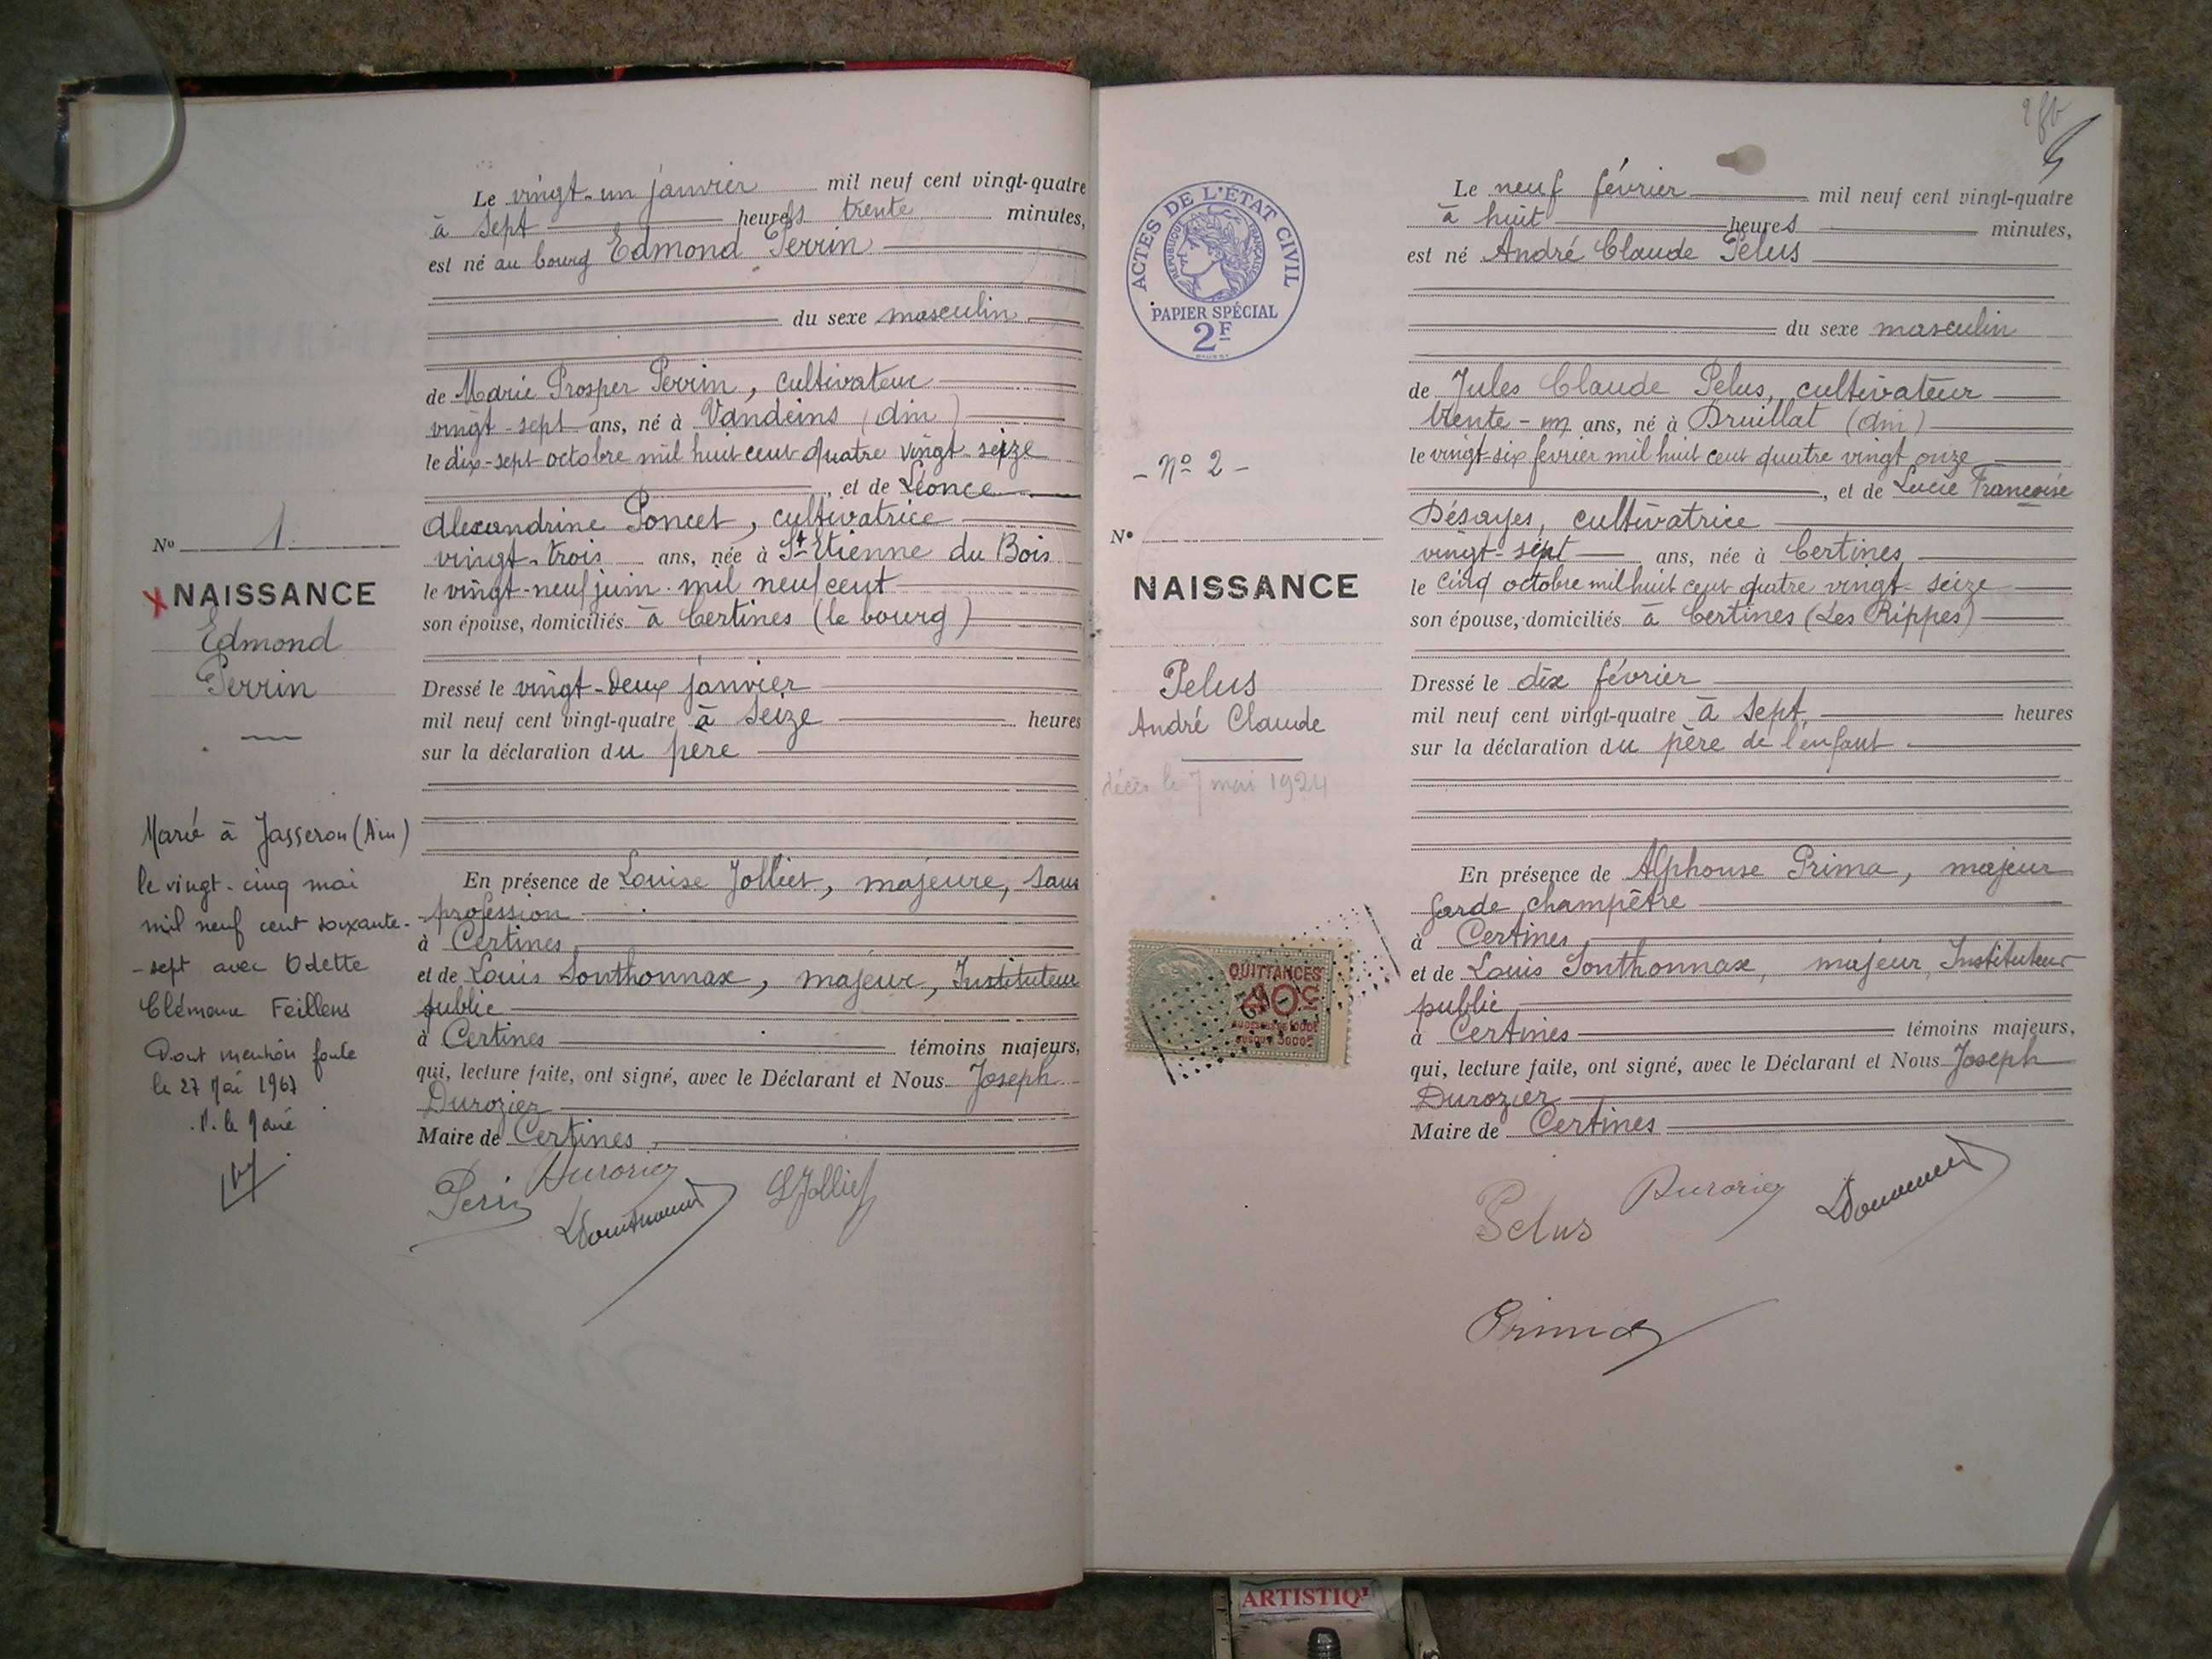 Le vingt-un janvier mil neuf cent vingt-quatre
à sept heures trente minutes,
est né au bourg Edmond Perrin
du sexe masculin
de Marie Prosper Perrin, cultivateur
vingt-sept ans, né à Vandeins (Ain)
le dix-sept octobre mil huit cent quatre vingt-seize
, et de Léonce
Alexandrine Poncet, cultivatrice
vingt-trois ans, née à St Etienne du Bois
le vingt-neuf juin mil neuf cent
son épouse, domiciliés à Certines (le bourg)
Dressé le vingt-deux janvier
mil neuf cent vingt-quatre à seize heures
sur la déclaration du père
En présence de Louise Jolliet, majeure, sans
profession
à Certines
et de Louis Sonthonnax, majeur, Instituteur
public
à Certines témoins majeurs,
qui, lecture faite, ont signé, avec le Déclarant et Nous Joseph
Durozier
Maire de Certines
Perin Durozier
LSonthonnax LJolliet
No 1
NAISSANCE
Edmond
Perrin
Marié à Jasseron (Ain)
le vingt-cinq mai
mil neuf cent soixante-
-sept avec Odette
Clémence Feillens
Dont mention faite
le 27 Mai 1967
le Maire
ACTES DE L'ÉTAT CIVIL
RÉPUBLIQUE FRANÇAISE
PAPIER SPÉCIAL
2F
- No 2 -
No
NAISSANCE
Pelus
André Claude
décès le 7 mai 1924
QUITTANCES
40c
AU DESSUS DE 1000F
JUSQU'A 3000F
Le neuf février mil neuf cent vingt-quatre
à huit heures minutes,
est né André Claude Pelus
du sexe masculin
de Jules Claude Pelus, cultivateur
trente-un ans, né à Druillat (Ain)
le vingt-six février mil huit cent quatre vingt onze
, et de Lucie Françoise
Désayes, cultivatrice
vingt-sept ans, née à Certines
le cinq octobre mil huit cent quatre vingt-seize
son épouse, domiciliés à Certines (Les Rippes)
Dressé le dix février
mil neuf cent vingt-quatre à sept heures
sur la déclaration du père de l'enfant
En présence de Alphonse Prima, majeur
garde champêtre
à Certines
et de Louis Sonthonnax, majeur, Instituteur
public
à Certines témoins majeurs,
qui, lecture faite, ont signé, avec le Déclarant et Nous Joseph
Durozier
Maire de Certines
Pelus Durozier LSonthonnax
Prima
ARTISTIQ